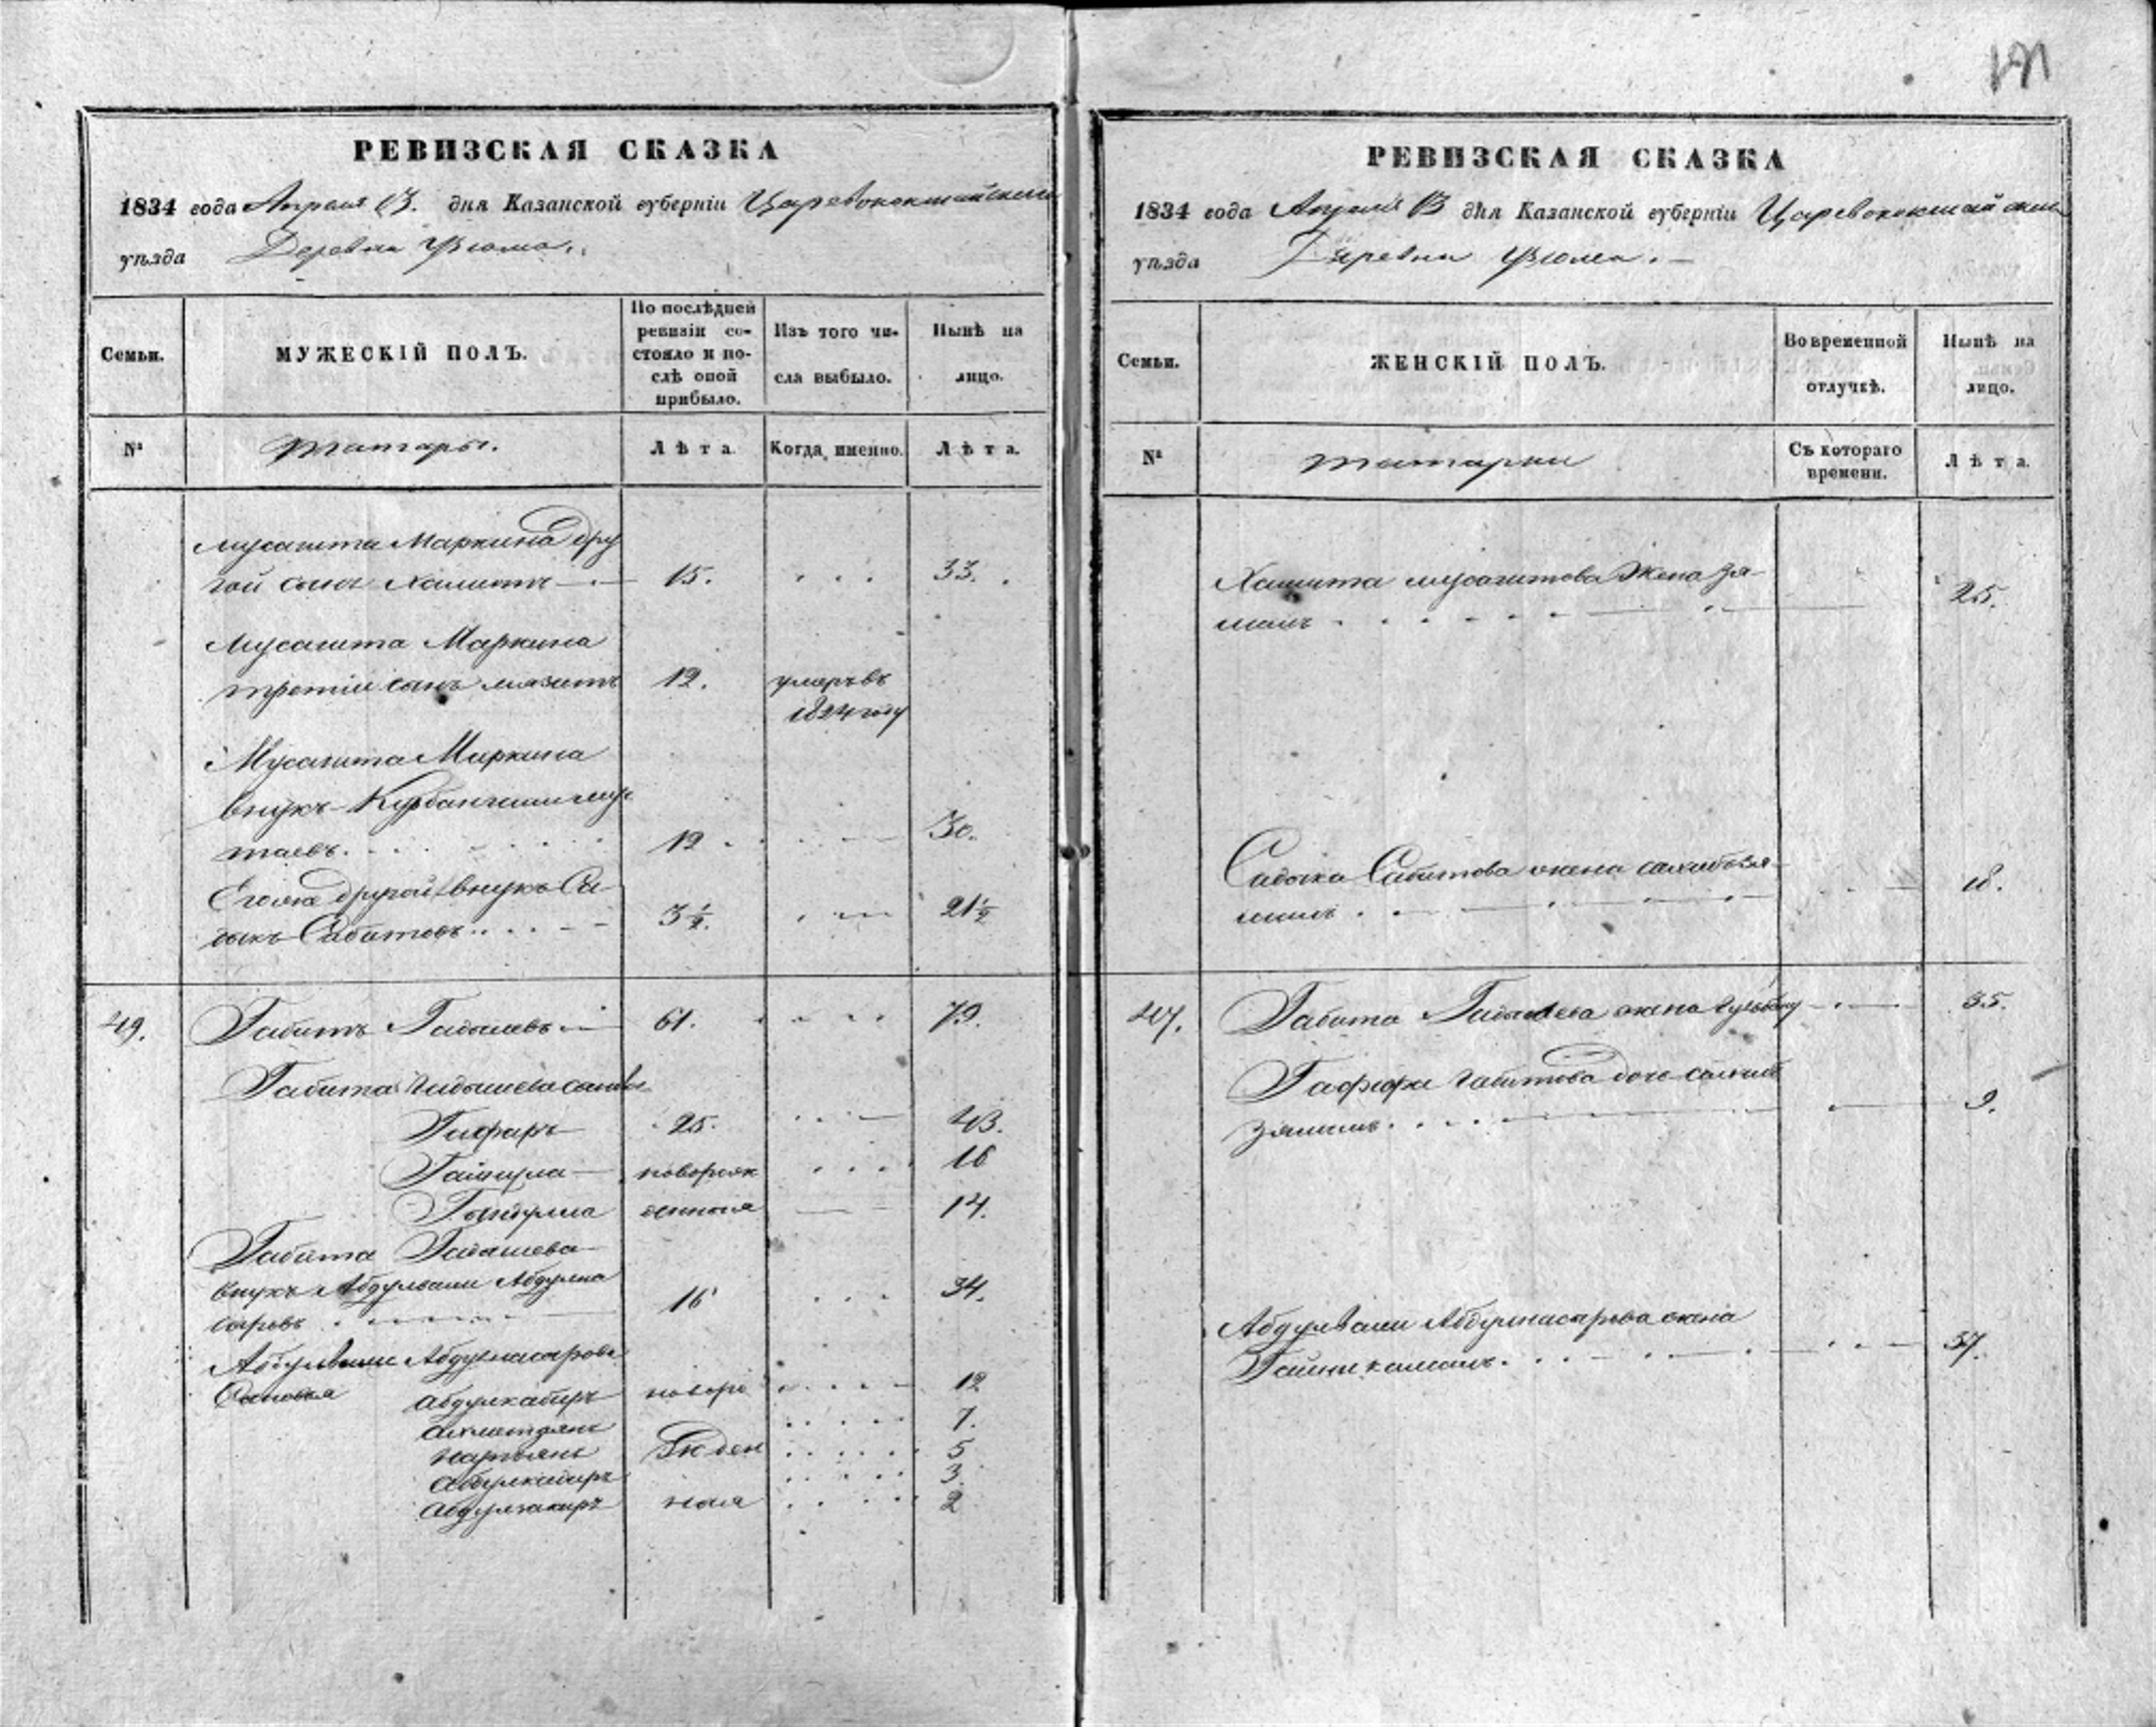 191
РЕВИЗСКАЯ СКАЗКА
1834 года Апреля 13. дня Казанской губерніи Царевококшайскаго
уѣзда Деревни Уьюма.
Семьи.
МУЖЕСКІЙ ПОЛЪ.
По послѣдней ревизіи состояло и послѣ оной прибыло.
Изъ того числа выбыло.
Нынѣ на лицо.
№
татары.
Лѣта.
Когда именно.
Лѣта.
Мусагита Маркина дру
гой сынъ Хамитъ 15. 33.
Мусагита Маркина
третіи сынъ мязитъ 12. умеръ въ
1824 году
Мусагита Маркина
внукъ Курбангали му
таевъ. 12 30.
Егоже другой внукъ Са
дыкъ Сабитовъ 3½. 21½
49. Габитъ Гадышевъ 61. 79.
Габита Гадышева сыновья
Гафаръ 25. 43.
новорож 16
денныя 14.
Габита Гадышева
внукъ Абдулвали Абдулна
сыровъ 16 34.
Абдулвали Абдулнасырова
Сыновья Абдулкабиръ новоро 12
Ахметзянъ 7.
жден 5
Абдулкадыръ 3
Абдулзакиръ ныя 2
РЕВИЗСКАЯ СКАЗКА
1834 года Апреля 13 дня Казанской губерніи Царевококшайскаго
уѣзда Деревни
Семьи.
ЖЕНСКІЙ ПОЛЪ.
Во временной отлучкѣ.
Нынѣ на лицо.
№
татарки
Съ котораго времени.
Лѣта.
Хамита мусагитова Жена Зя-
малъ 25.
Садыка Сабитова жена сахибзя-
малъ 18.
49. Габита Гадышева жена Гульбану 35.
Гафара Габитова дочь сахиб
зямалъ. 9.
Абдулвали Абдулнасырова жена
Гайникамалъ. 37.